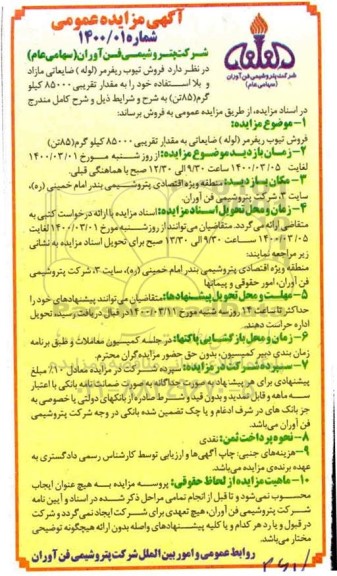 آگهی مزایده عمومی
شماره ۱۴۰۰/۰۱
شرکت پتروشیمی فن‌آوران (سهامی عام)
شرکت پتروشیمی فن آوران
(سهامی عام)
در نظر دارد فروش تیوب ریفرمر (لوله) ضایعاتی مازاد
و بلا استفاده خود را به مقدار تقریبی ۸۵۰۰۰ کیلو
گرم (۸۵تن) به شرح و شرایط ذیل و شرح کامل مندرج
در اسناد مزایده، از طریق مزایده عمومی به فروش برساند:
۱- موضوع مزایده:
فروش تیوب ریفرمر (لوله) ضایعاتی به مقدار تقریبی ۸۵۰۰۰ کیلو گرم (۸۵تن)
۲- زمان بازدید موضوع مزایده: از روز شنبه مورخ ۱۴۰۰/۰۳/۰۱
لغایت ۱۴۰۰/۰۳/۰۵ ساعت ۹/۳۰ الی ۱۲/۳۰ صبح با هماهنگی قبلی.
۳- مکان بازدید: منطقه ویژه اقتصادی پتروشیمی بندر امام خمینی (ره)،
سایت ۳، شرکت پتروشیمی فن آوران.
۴- زمان و محل تحویل اسناد مزایده: اسناد مزایده با ارائه درخواست کتبی به
متقاضی ارائه می گردد. متقاضیان می توانند از روز شنبه مورخ ۱۴۰۰/۰۳/۰۱ لغایت
۱۴۰۰/۰۳/۰۵ ساعت ۹/۳۰ الی ۱۳/۳۰ صبح برای تحویل اسناد مزایده به نشانی
زیر مراجعه نمایند:
منطقه ویژه اقتصادی پتروشیمی بندر امام خمینی (ره)، سایت ۳، شرکت پتروشیمی
فن آوران، امور حقوقی و پیمانها
۵- مهلت و محل تحویل پیشنهادها: متقاضیان می توانند پیشنهادهای خود را
حداکثر تا ساعت ۱۴ روز سه شنبه مورخ ۱۴۰۰/۰۳/۱۱ در قبال دریافت رسید، تحویل
اداره حراست دهند.
۶- زمان و محل بازگشایی پاکتها: در جلسه کمیسیون معاملات و طبق برنامه
زمان بندی دبیر کمیسیون، بدون حق حضور مزایده گران محترم.
۷- سپرده شرکت در مزایده: سپرده شرکت در مزایده معادل ۱۰٪ مبلغ
پیشنهادی برای هر پیشنهاد به صورت جداگانه به صورت ضمانتنامه بانکی با اعتبار
سه ماهه و قابل تمدید و بدون قید و شرط صادره از بانکهای دولتی یا خصوصی به
جز بانک های در شرف ادغام و یا چک تضمین شده بانکی در وجه شرکت پتروشیمی
فن آوران می‌باشد.
۸- نحوه پرداخت ثمن: نقدی
۹- هزینه‌های جنبی: چاپ آگهی‌ها و ارزیابی توسط کارشناس رسمی دادگستری به
عهده برنده‌ی مزایده می‌باشد.
۱۰- ماهیت مزایده از لحاظ حقوقی: پروسه مزایده به هیچ عنوان ایجاب
محسوب نمی‌شود و تا قبل از انجام تمامی مراحل ذکر شده در اسناد و آیین نامه
شرکت پتروشیمی فن آوران، هیچ تعهدی برای شرکت ایجاد نمی‌گردد و شرکت
در قبول و یا رد هر کدام و یا کلیه پیشنهادهای واصله بدون ارائه هیچگونه توضیحی
مختار می‌باشد.
روابط عمومی و امور بین الملل شرکت پتروشیمی فن آوران